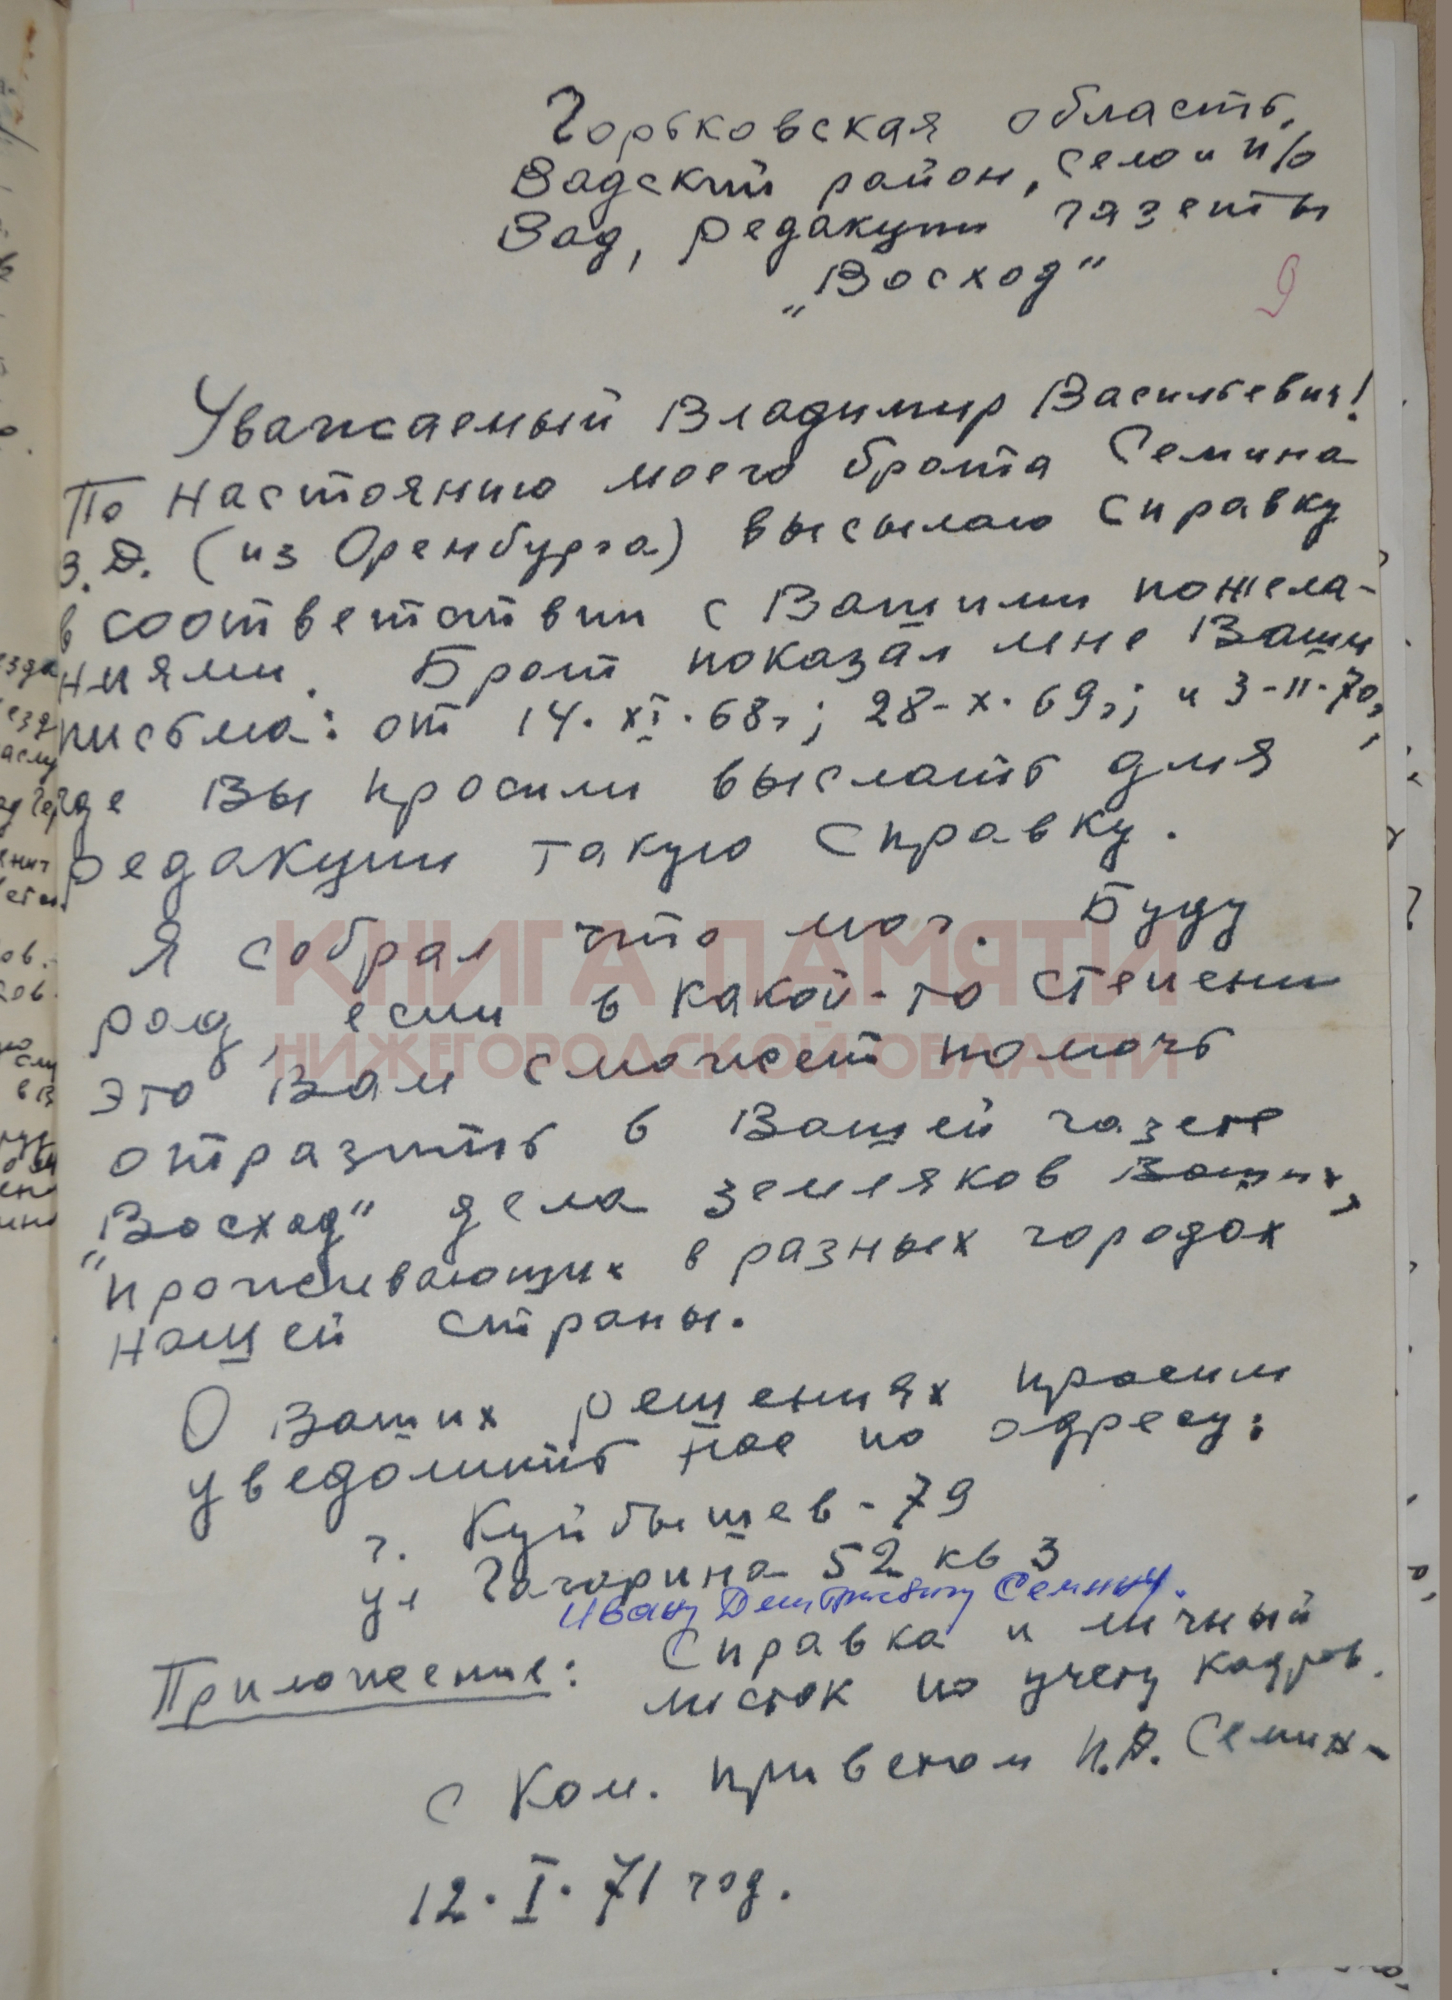 Горьковская область,
Вадский район, село и п/о
Вад, редакции газеты
„Восход"
9
Уважаемый Владимир Васильевич!
По настоянию моего брата Семина
З.Д. (из Оренбурга) высылаю справку
в соответствии с Вашими пожела-
ниями. Брат показал мне Ваши
письма: от 14.XI.68г; 28-X.69г; и 3-II-70г,
где Вы просили выслать для
редакции такую справку.
Я собрал что мог. Буду
рад, если в какой-то степени
это Вам сможет помочь
отразить в Вашей газете
„Восход" дела земляков Ваших,
проживающих в разных городах
нашей страны.
О Ваших решениях просим
уведомить нас по адресу:
г. Куйбышев-79
ул Гагарина 52 кв 3
Ивану Дмитриевичу Семину.
Приложение: Справка и личный
листок по учету кадров.
С Ком. приветом И.Д. Семин
12.I.71 год.
КНИГА ПАМЯТИ
НИЖЕГОРОДСКОЙ ОБЛАСТИ